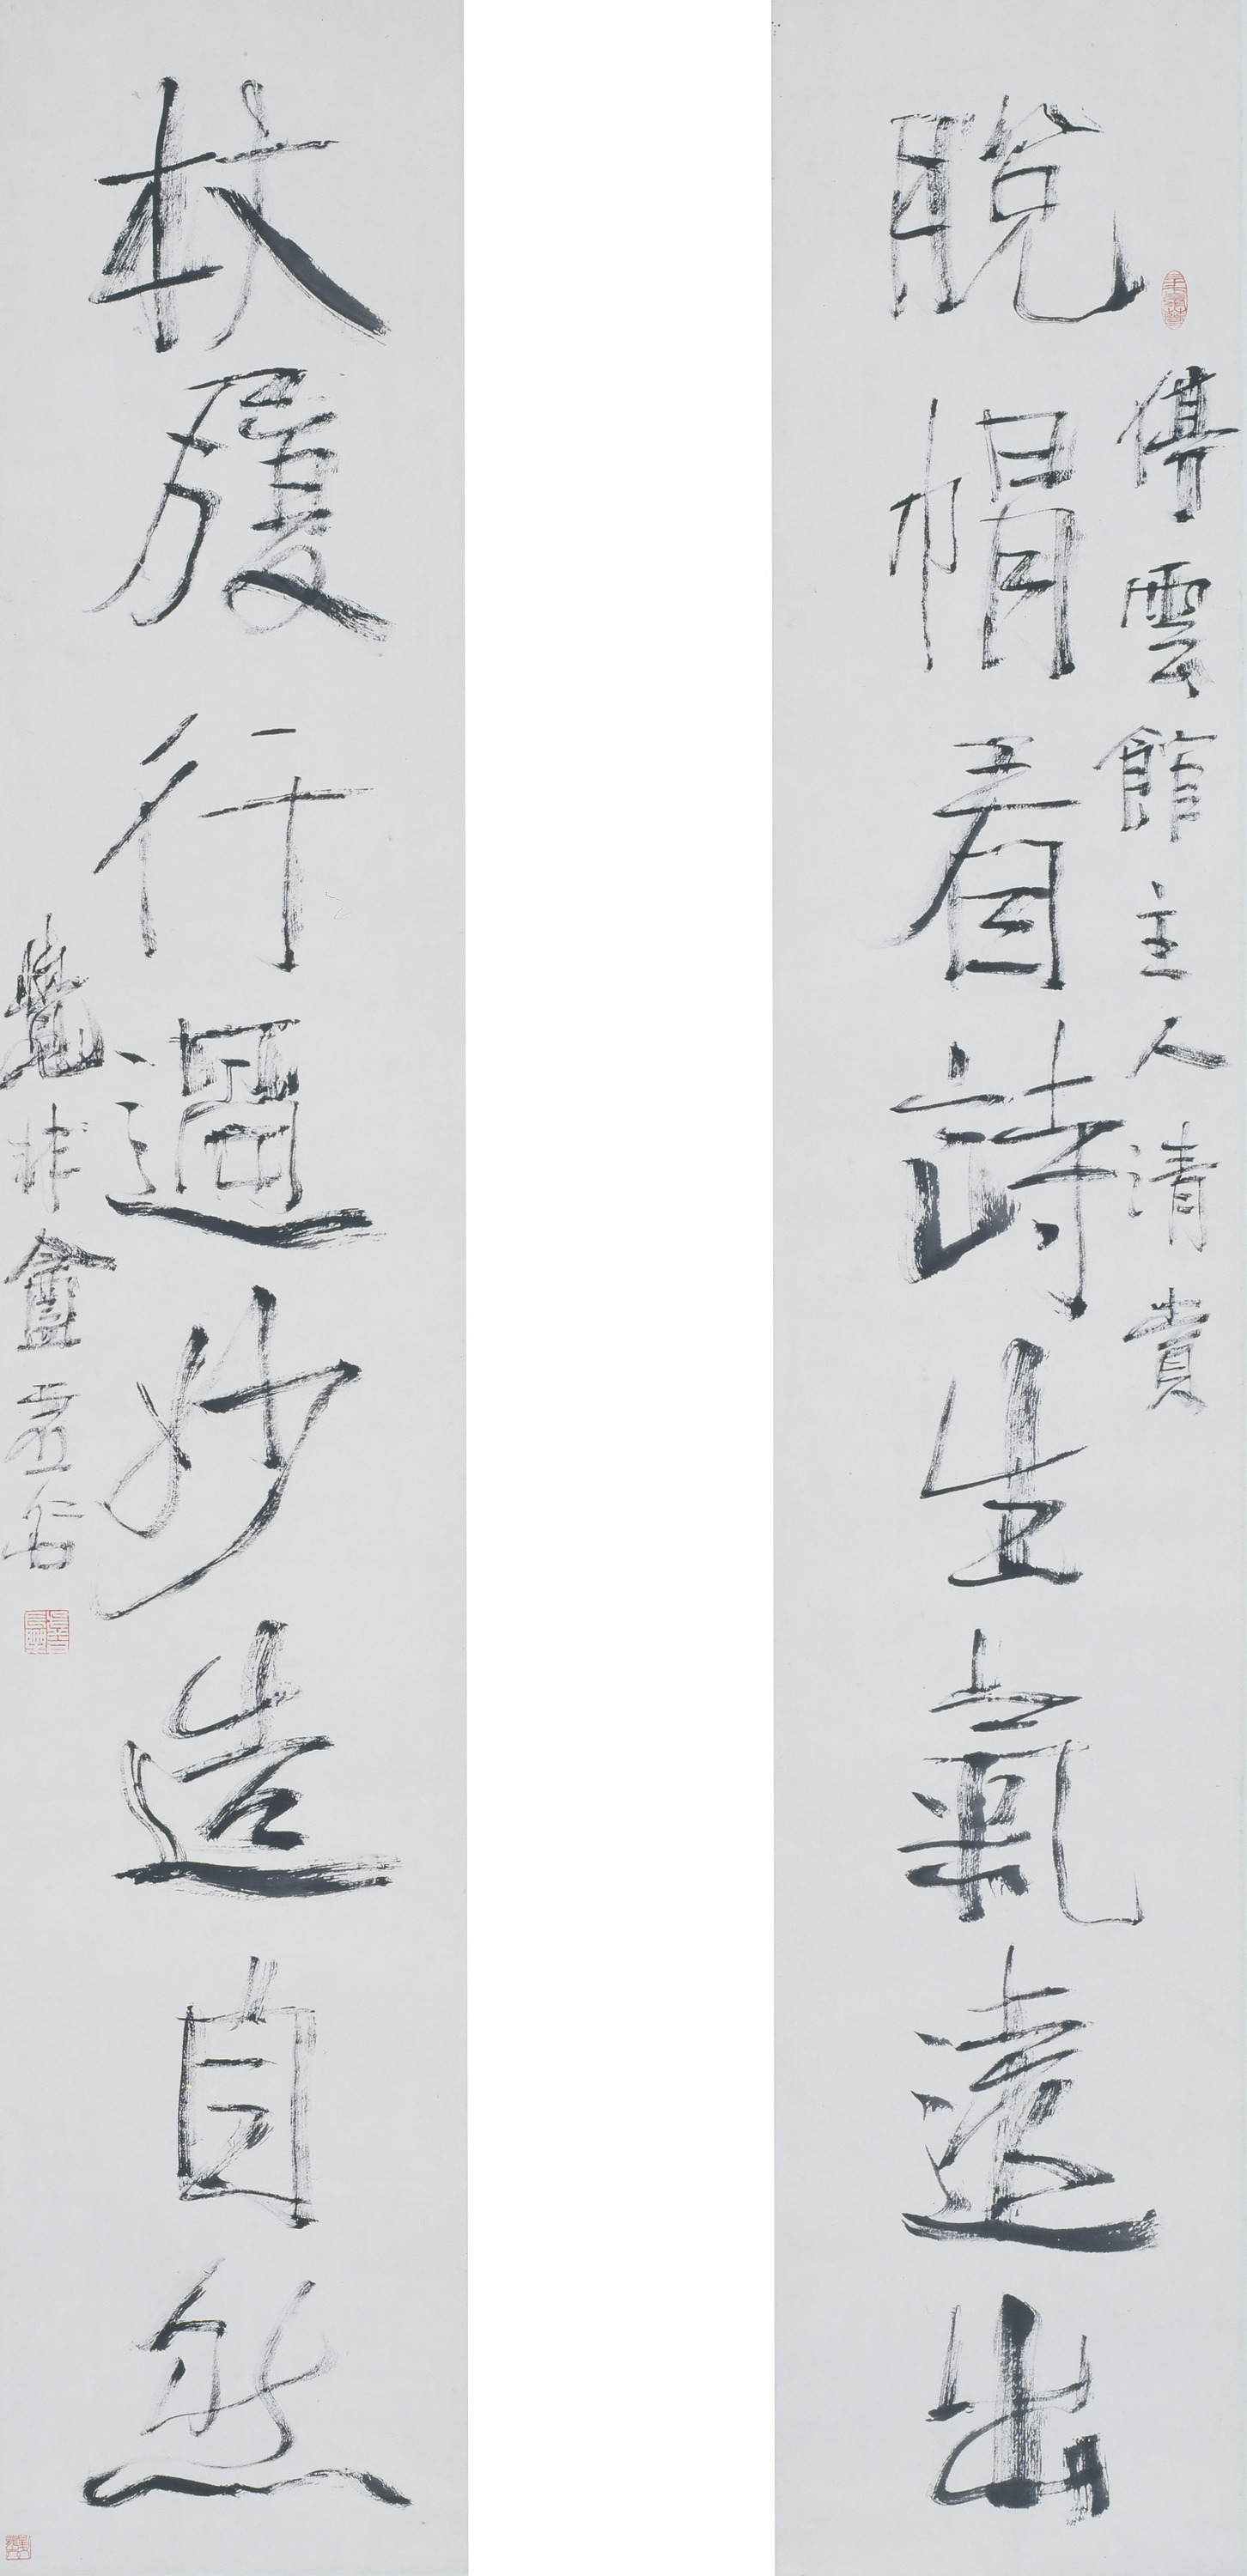 停雲館主人清賞
脫帽看詩生氣遠出
杖履行過妙造自然
覺非盦虛谷